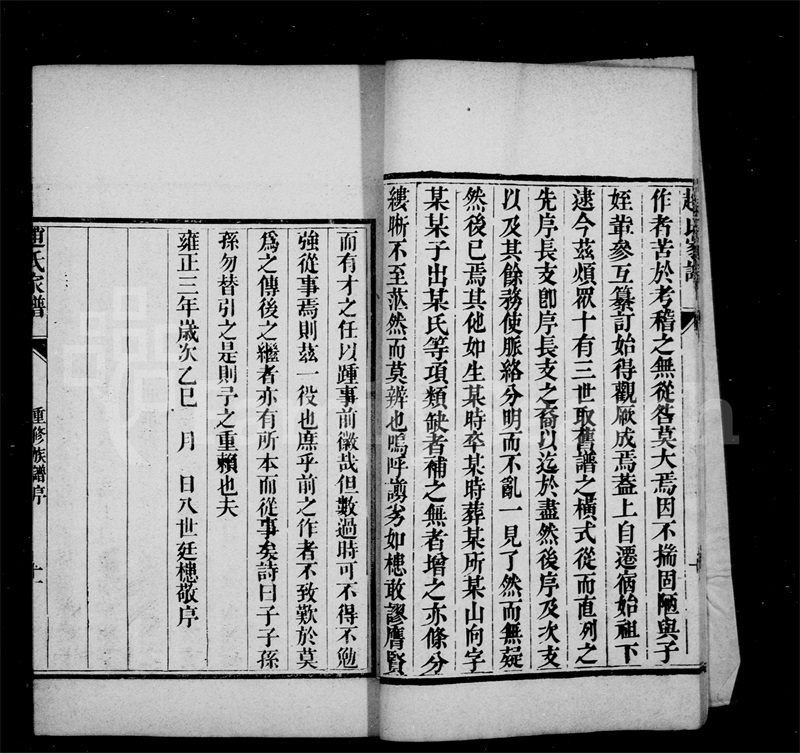 趙氏家譜
作者苦於考稽之無從咎莫大焉因不揣固陋與子
姪輩參互纂訂始得觀厥成焉蓋上自遷宿始祖下
逮今茲煩眾十有三世取舊譜之橫式從而直列之
先序長支卽序長支之裔以迄於盡然後序及次支
以及其餘務使脈絡分明而不亂一見了然而無疑
然後已焉其他如生某時卒某時葬某所某山向字
某某子出某氏等項類缺者補之無者增之亦條分
縷晰不至茫然而莫辨也嗚呼謭劣如樬敢謬膺賢
而有才之任以踵事前徽哉但數過時可不得不勉
強從事焉則茲一役也庶乎前之作者不致歎於莫
爲之傳後之繼者亦有所本而從事矣詩曰子子孫
孫勿替引之是則予之重賴也夫
雍正三年歲次乙巳　月　日八世廷樬敬序
趙氏家譜
重修族譜序
十一